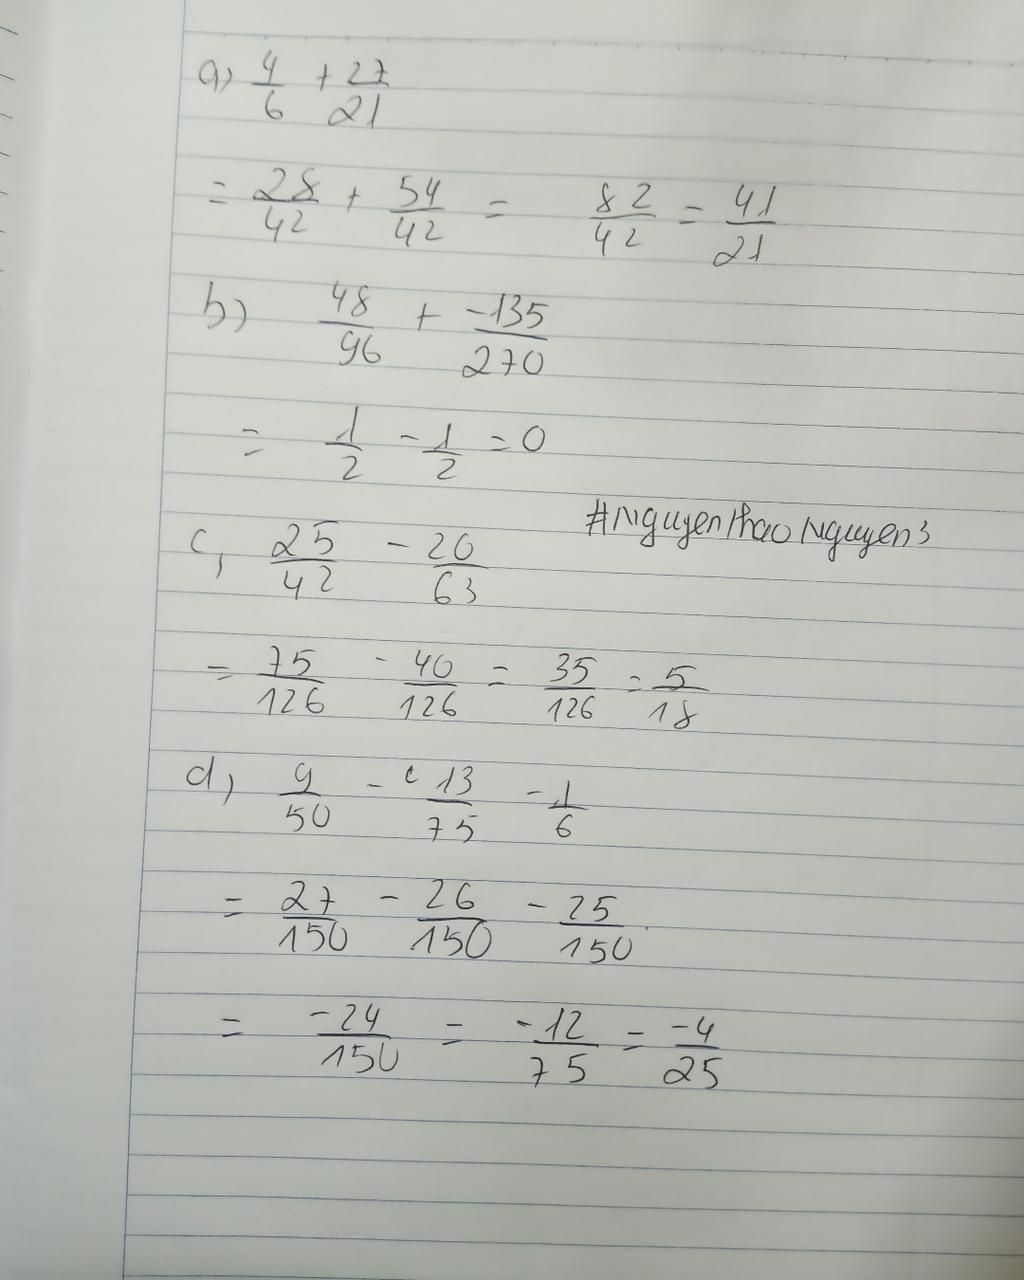 a) 4/6 + 27/21
= 28/42 + 54/42 = 82/42 = 41/21
b) 48/96 + -135/270
= 1/2 - 1/2 = 0
#NguyenThaoNguyen3
c, 25/42 - 20/63
= 75/126 - 40/126 = 35/126 = 5/18
d, 9/50 - 13/75 - 1/6
= 27/150 - 26/150 - 25/150
= -24/150 = -12/75 = -4/25